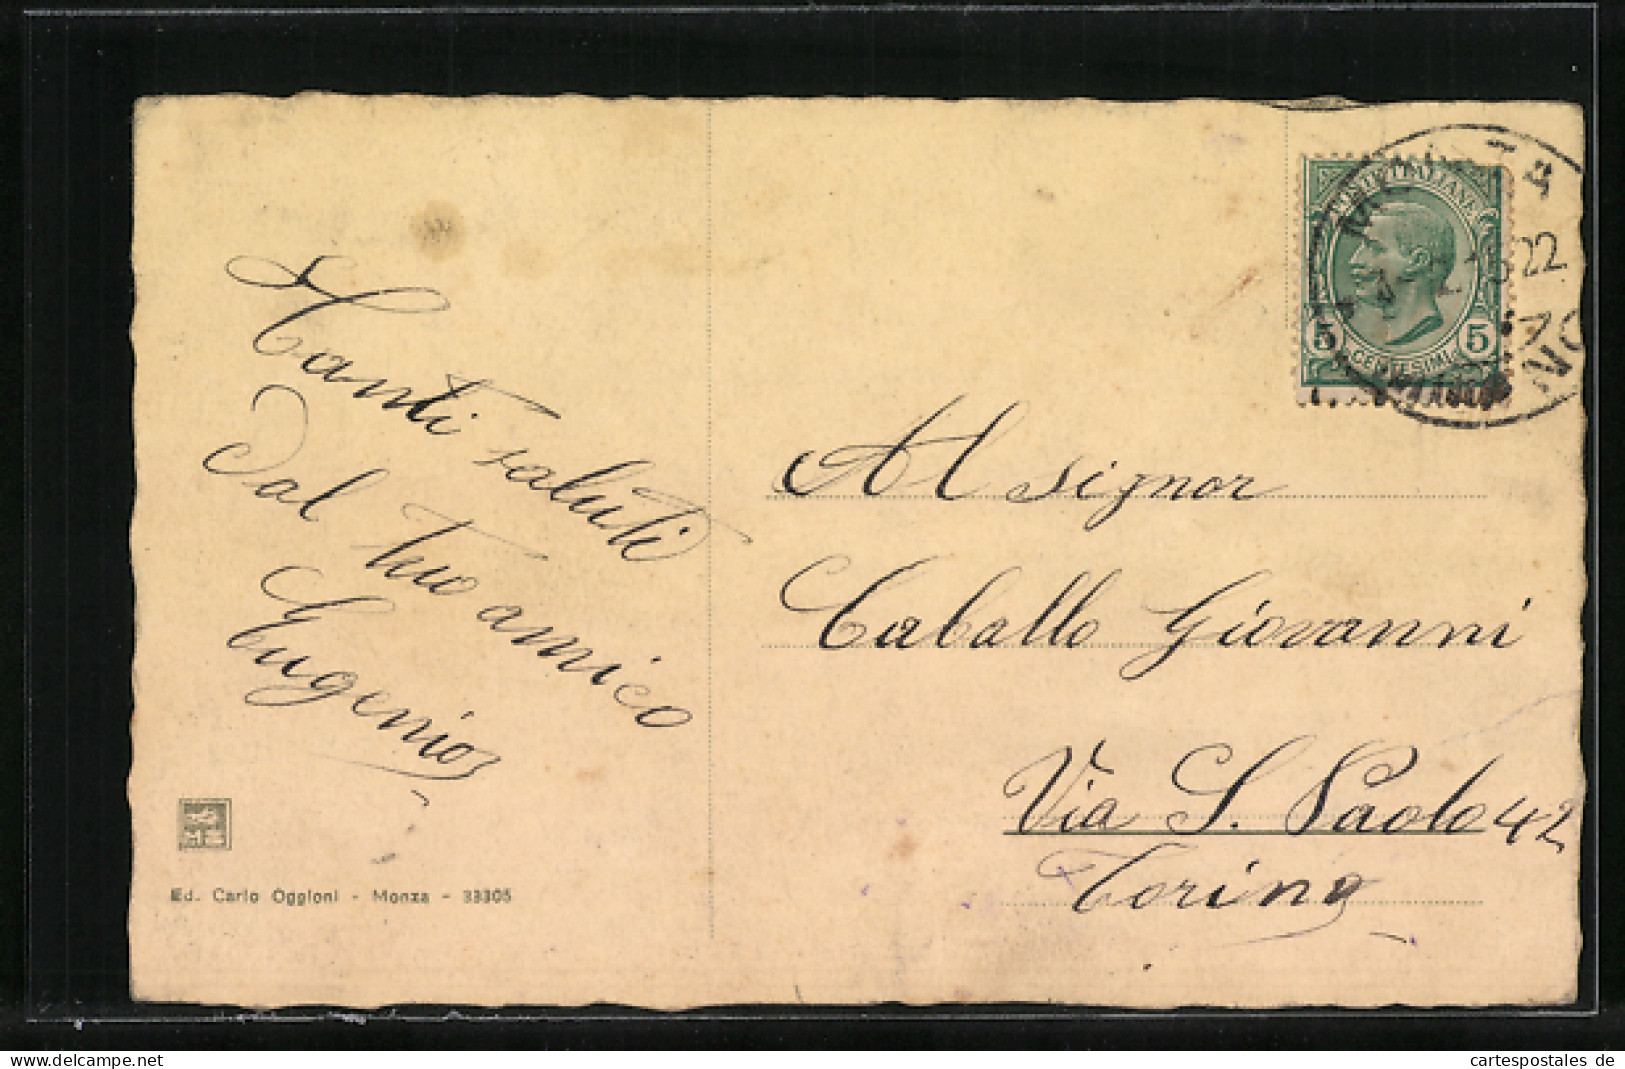 Tanti saluti
Dal tuo amico
Eugenio
Ed. Carlo Oggioni - Monza - 33305
POSTE ITALIANE
22
5 5
CENTESIMI
Al signor
Caballo Giovanni
Via S. Paolo 42
Torino
cartespostales.de